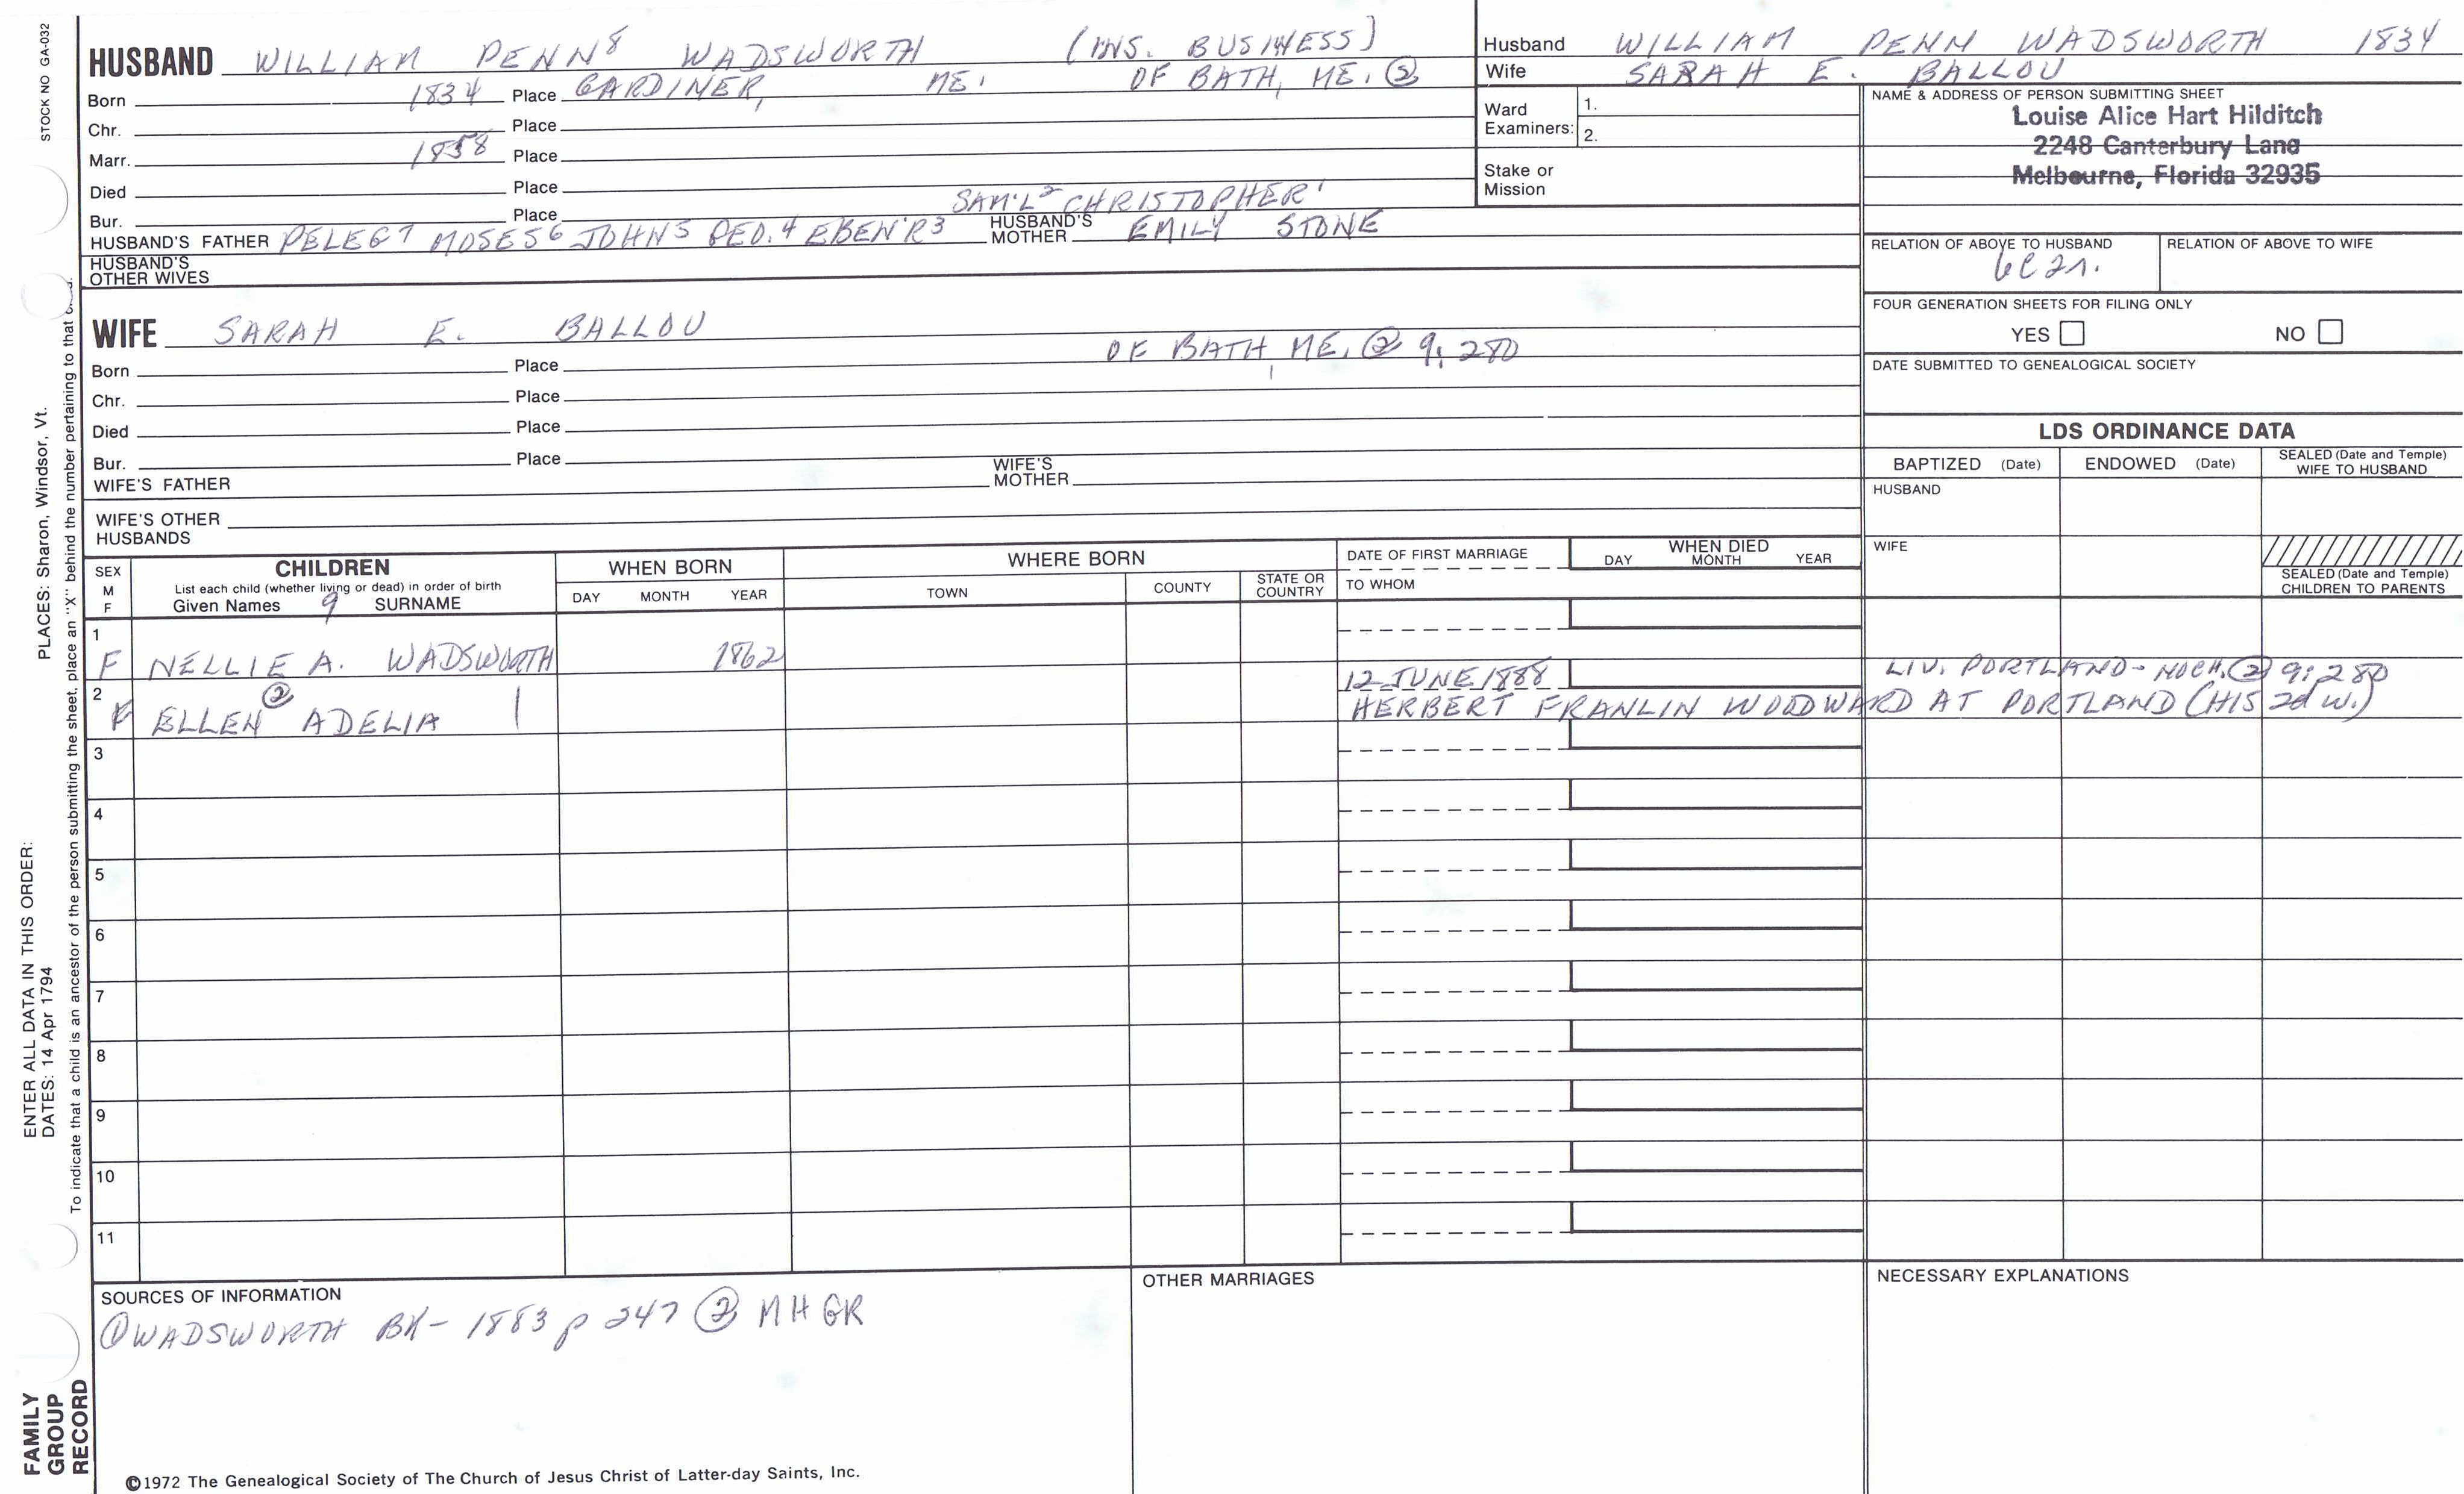 STOCK NO GA-032
PLACES: Sharon, Windsor, Vt.
ENTER ALL DATA IN THIS ORDER:
DATES: 14 Apr 1794
To indicate that a child is an ancestor of the person submitting the sheet, place an "X" behind the number pertaining to that
FAMILY
GROUP
RECORD
HUSBAND WILLIAM PENN8 WADSWORTH (INS. BUSINESS)
Born 1834 Place GARDINER, ME. OF BATH, ME. ②
Chr. Place
Marr. 1858 Place
Died Place
Bur. Place SAM'L2 CHRISTOPHER1
HUSBAND'S FATHER PELEG7 MOSES6 JOHN5 PED.4 EBEN'R3 HUSBAND'S MOTHER EMILY STONE
HUSBAND'S
OTHER WIVES
WIFE SARAH E. BALLOU
OF BATH, ME. ② 9:280
Born Place
Chr. Place
Died Place
Bur. Place
WIFE'S FATHER WIFE'S MOTHER
WIFE'S OTHER
HUSBANDS
Husband WILLIAM PENN WADSWORTH 1834
Wife SARAH E. BALLOU
Ward
Examiners: 1.
2.
Stake or
Mission
NAME & ADDRESS OF PERSON SUBMITTING SHEET
Louise Alice Hart Hilditch
2248 Canterbury Lane
Melbourne, Florida 32935
RELATION OF ABOVE TO HUSBAND RELATION OF ABOVE TO WIFE
6C2r.
FOUR GENERATION SHEETS FOR FILING ONLY
YES NO
DATE SUBMITTED TO GENEALOGICAL SOCIETY
LDS ORDINANCE DATA
BAPTIZED (Date) ENDOWED (Date) SEALED (Date and Temple) WIFE TO HUSBAND
HUSBAND
WIFE
SEALED (Date and Temple)
CHILDREN TO PARENTS
SEX
M
F
CHILDREN
List each child (whether living or dead) in order of birth
Given Names 9 SURNAME
WHEN BORN
DAY MONTH YEAR
WHERE BORN
TOWN COUNTY STATE OR COUNTRY
DATE OF FIRST MARRIAGE
TO WHOM
WHEN DIED
DAY MONTH YEAR
1
F NELLIE A. WADSWORTH 1862
LIV. PORTLAND - NOCH. ② 9:280
2 ② 12 JUNE 1888
F ELLEN ADELIA HERBERT FRANLIN WOODWARD AT PORTLAND (HIS 2d W.)
3
4
5
6
7
8
9
10
11
SOURCES OF INFORMATION
① WADSWORTH BK- 1883 p 247 ② MHGR
OTHER MARRIAGES
NECESSARY EXPLANATIONS
©1972 The Genealogical Society of The Church of Jesus Christ of Latter-day Saints, Inc.